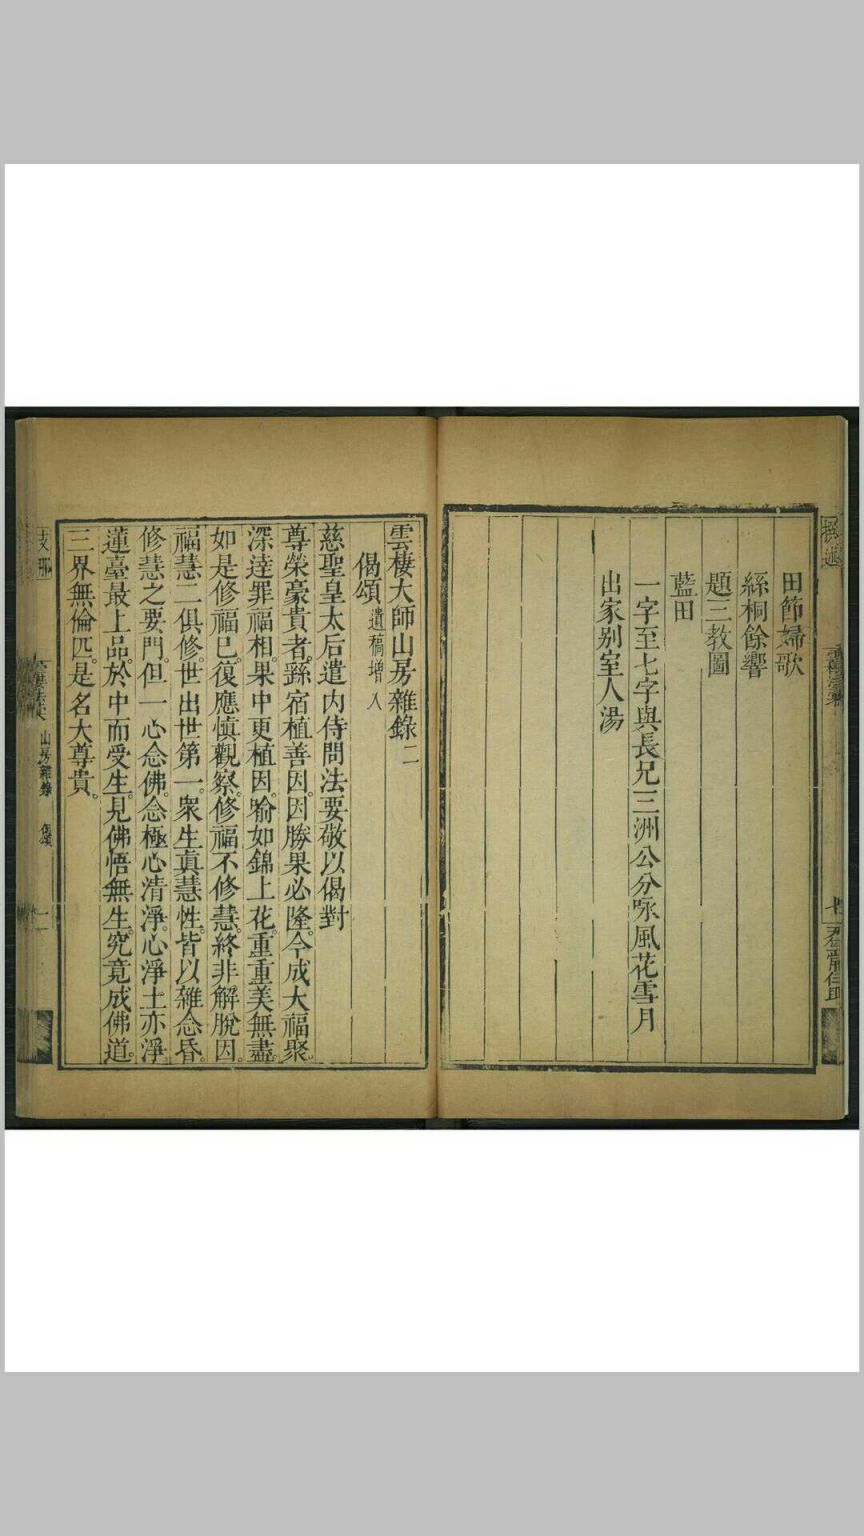 田節婦歌
絲桐餘響
題三教圖
藍田
一字至七字與長兄三洲公分咏風花雪月
出家别室人湯
雲棲大師山房雜錄二
偈頌遺稿增入
慈聖皇太后遣內侍問法要敬以偈對
尊榮豪貴者。繇宿植善因。因勝果必隆。今成大福聚。
深達罪福相。果中更植因。喻如錦上花。重重美無盡。
如是修福已。復應慎觀察。修福不修慧。終非解脫因。
福慧二俱修。世出世第一。衆生真慧性。皆以雜念昏。
修慧之要門。但一心念佛。念極心清淨。心淨土亦淨。
蓮臺最上品。於中而受生。見佛悟無生。究竟成佛道。
三界無倫匹。是名大尊貴。
支那
山房雜錄
偈頌
一